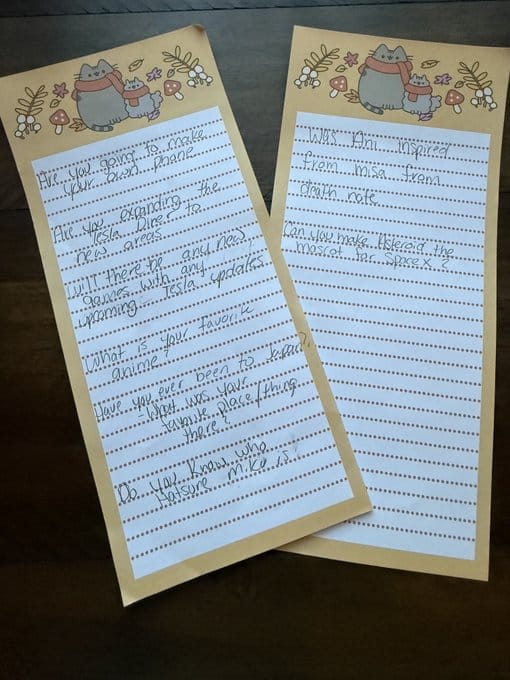 Are you going to make
your own phone
Are you expanding the
Tesla Diner to
new areas
Will there be any new
games with any
upcoming Tesla updates
What is your favorite
anime?
Have you ever been to Japan?
What was your
favorite place/thing
there?
Do you know who
Hatsune Miku is?
Was Ani inspired
from misa from
death note
Can you make Asteroid the
mascot for SpaceX?